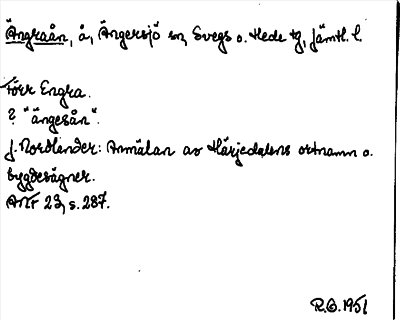 Ängraån, å, Ängersjö sn, Svegs o. Hede tg, Jämtl. l.
Förr Engra.
? "ängesån".
J. Nordlander: Anmälan av Härjedalens ortnamn o.
bygdesägner.
ANF 23, s. 287.
R.O. 1951